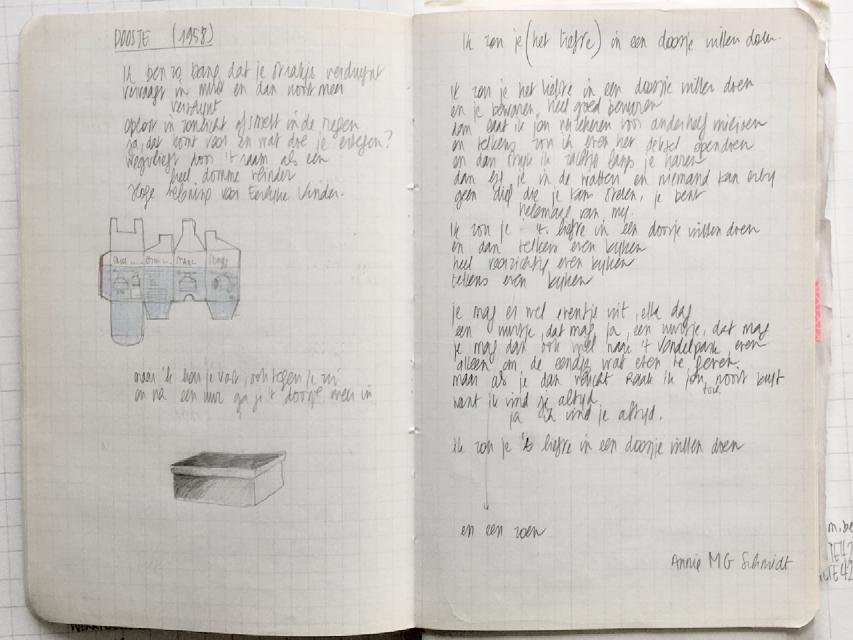 DOOSJE (1958)
Ik ben zo bang dat je straks verdwijnt
vervaagt in mist en dan nooit meer
verschijnt
oplost in zonlicht of smelt in de regen
ja, dat komt voor en wat doe je ertegen?
wegvliegt door 't raam als een
heel domme vlinder
maar 'k hou je vast, ook tegen je zin
en na een uur ga je 't doosje weer in
Ik zou je (het liefste) in een doosje willen doen
Ik zou je het liefste in een doosje willen doen
en je bewaren, heel goed bewaren
dan laat ik jou verzekeren voor anderhalf miljoen
en telkens zou ik even het deksel opendoen
en dan strijk ik zachtjes langs je haren
dan lig je in de watten en niemand kan erbij
geen dief die je kan stelen, je bent
helemaal van mij.
Ik zou je 't liefste in een doosje willen doen
en dan telkens even kijken
heel voorzichtig even kijken
telkens even kijken
je mag er wel eventjes uit, elke dag
een uurtje, dat mag ja, een uurtje, dat mag
je mag dan ook wel naar 't Vondelpark, even
alleen om de eendjes wat eten te geven.
maar als je dan wegligt raak ik jou nooit kwijt
want ik vind je altijd
ja ik vind je altijd.
Ik zou je 't liefste in een doosje willen doen
en een zoen
Annie MG Schmidt
m.be